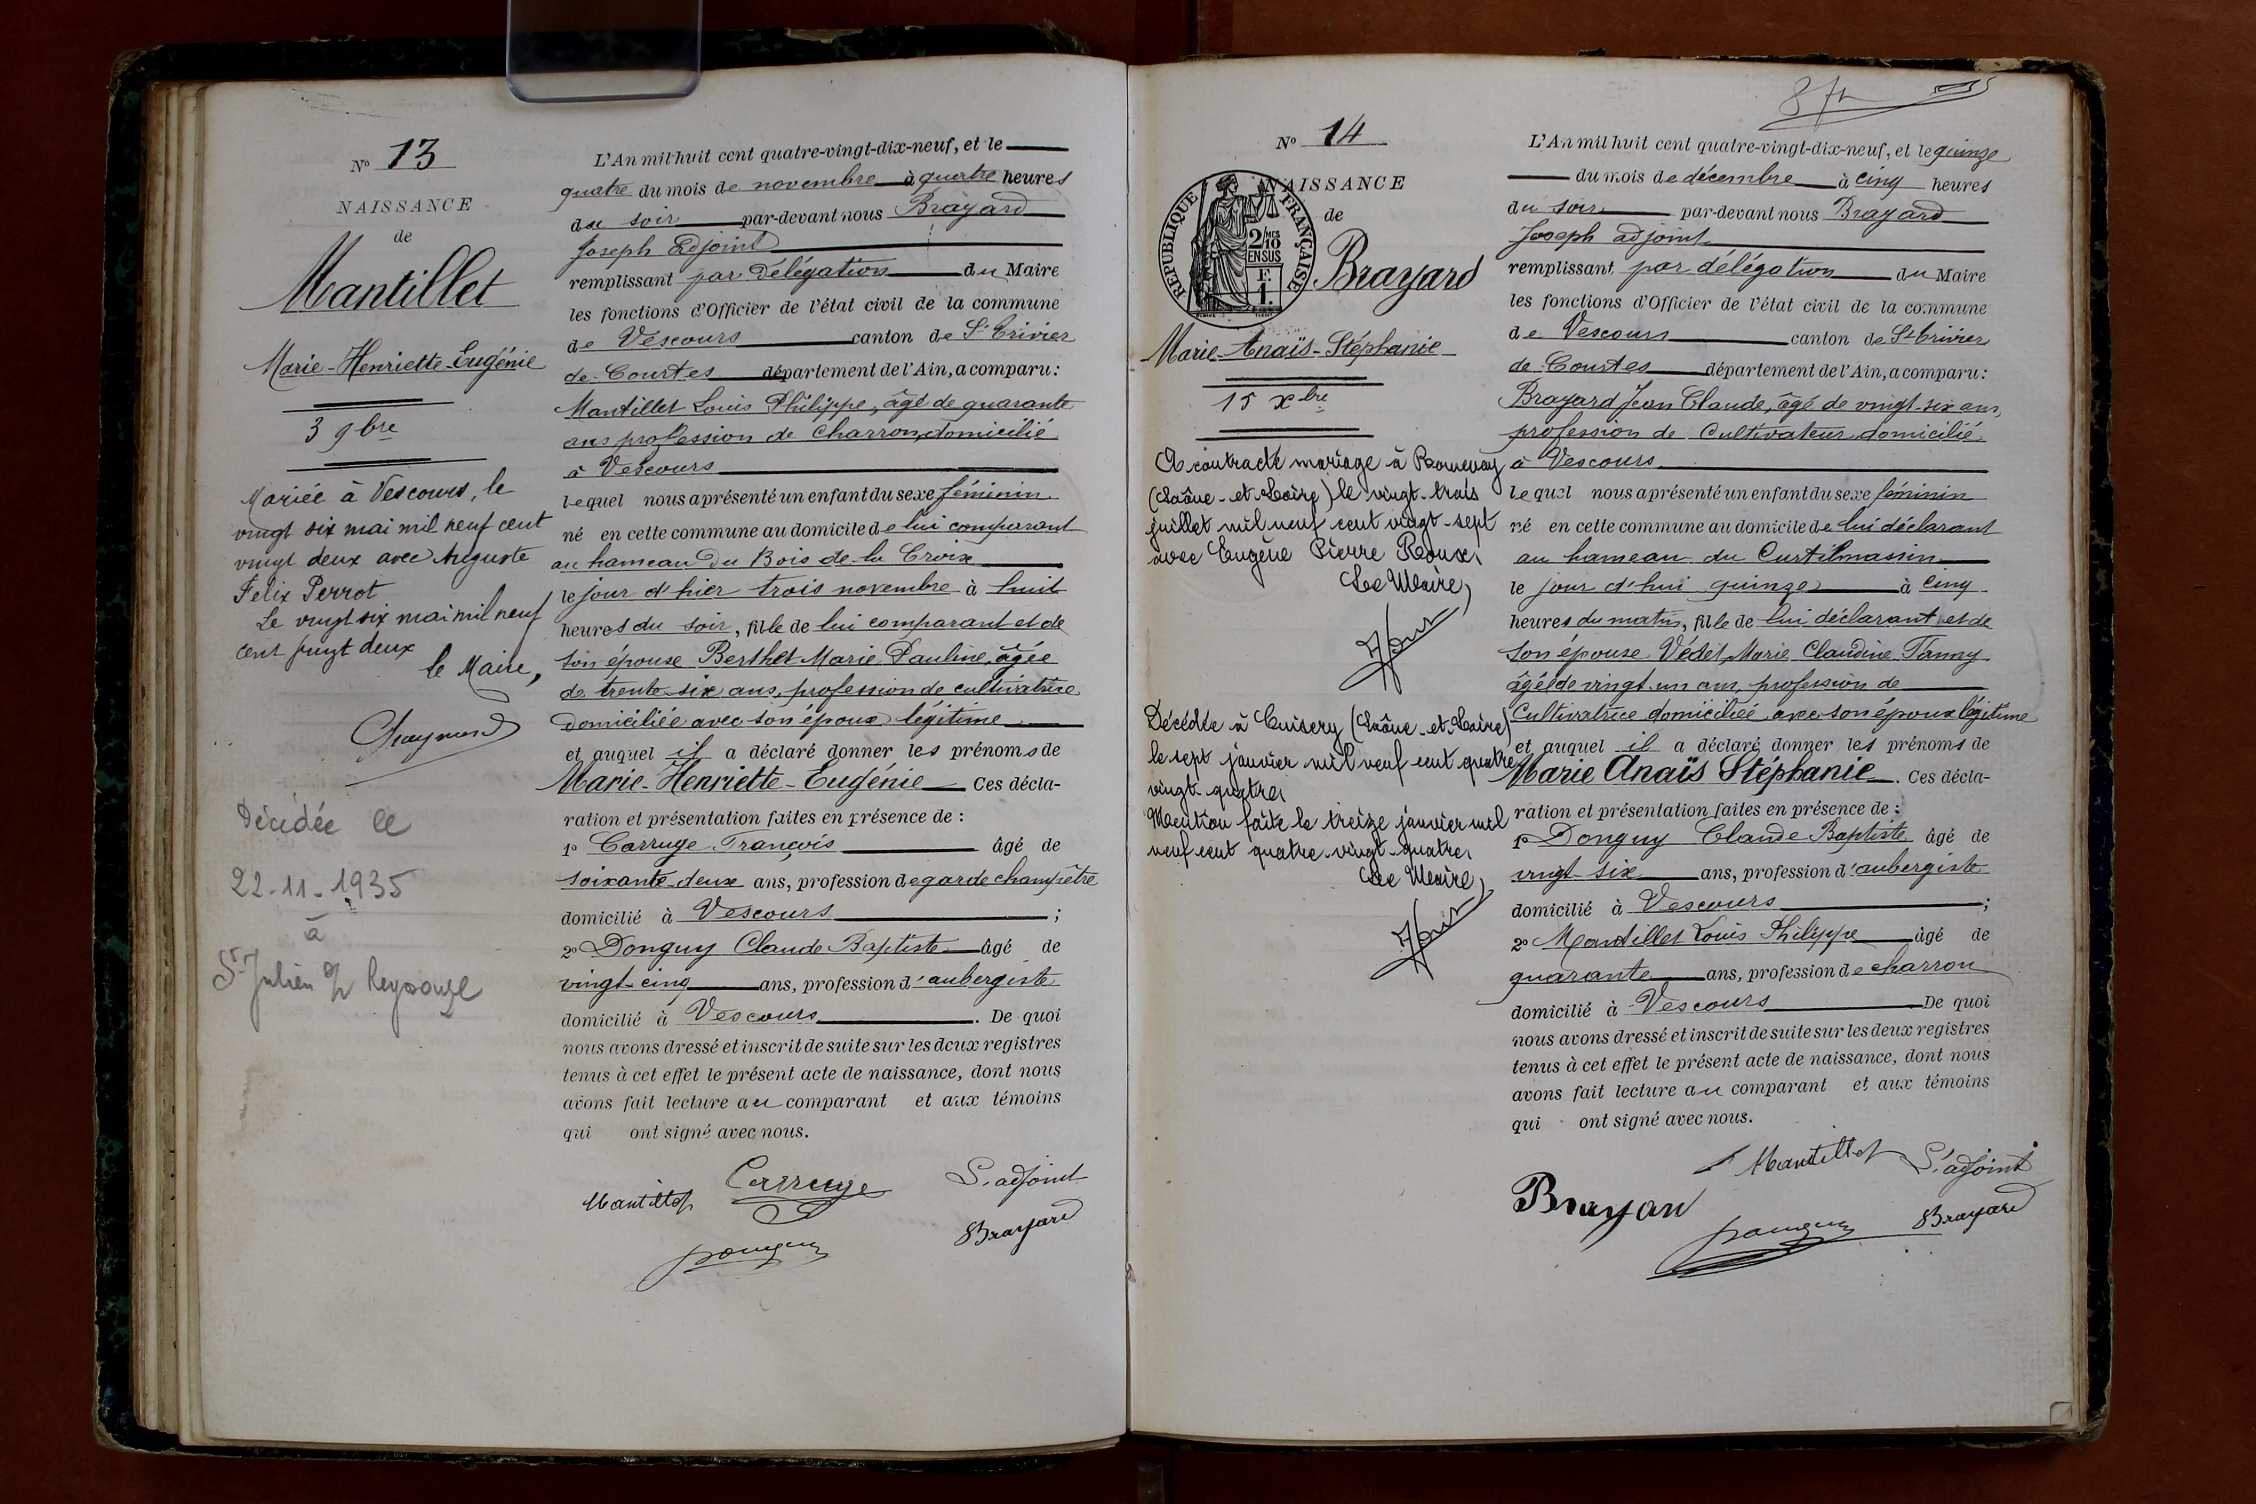 Nº 13
NAISSANCE
de
Mantillet
Marie-Henriette-Eugénie
3 9bre
Mariée à Vescours, le
vingt six mai mil neuf cent
vingt deux avec Auguste
Felix Perrot
Le vingt six mai mil neuf
cent vingt deux
le Maire,
Décédée le
22-11-1935
à
St Julien s/ Reyssouze
L'An mil huit cent quatre-vingt-dix-neuf, et le
quatre du mois de novembre à quatre heures
du soir par-devant nous Brayard
Joseph Adjoint
remplissant par délégation du Maire
les fonctions d'Officier de l'état civil de la commune
de Vescours canton de St Trivier
de Courtes département de l'Ain, a comparu:
Mantillet Louis Philippe, âgé de quarante
ans profession de Charron, domicilié
à Vescours
lequel nous a présenté un enfant du sexe féminin
né en cette commune au domicile de lui comparant
au hameau du Bois de la Croix
le jour d'hier trois novembre à huit
heures du soir, fille de lui comparant et de
son épouse Berthet Marie Pauline, âgée
de trente-six ans, profession de cultivatrice
domiciliée avec son époux légitime
et auquel il a déclaré donner les prénoms de
Marie-Henriette-Eugénie Ces décla-
ration et présentation faites en présence de :
1º Carruge François âgé de
soixante-deux ans, profession de garde champêtre
domicilié à Vescours ;
2º Donguy Claude Baptiste âgé de
vingt-cinq ans, profession d'aubergiste
domicilié à Vescours . De quoi
nous avons dressé et inscrit de suite sur les deux registres
tenus à cet effet le présent acte de naissance, dont nous
avons fait lecture au comparant et aux témoins
qui ont signé avec nous.
Mantillet Carruge L'adjoint
Donguy Brayard
Nº 14
NAISSANCE
de
RÉPUBLIQUE FRANÇAISE
2/10 MES
EN SUS
Brayard
Marie-Anaïs-Stéphanie
15 Xbre
A contracté mariage à Romenay
(Saône-et-Loire) le vingt-trois
juillet mil neuf cent vingt-sept
avec Eugène Pierre Roux.
Le Maire,
Décédée à Cuisery (Saône-et-Loire)
le sept janvier mil neuf cent quatre
vingt-quatre.
Mention faite le treize janvier mil
neuf cent quatre-vingt-quatre.
Le Maire,
L'An mil huit cent quatre-vingt-dix-neuf, et le quinze
du mois de décembre à cinq heures
du soir par-devant nous Brayard
Joseph adjoint
remplissant par délégation du Maire
les fonctions d'Officier de l'état civil de la commune
de Vescours canton de St-Trivier
de Courtes département de l'Ain, a comparu:
Brayard Jean Claude, âgé de vingt-six ans,
profession de Cultivateur domicilié
à Vescours
lequel nous a présenté un enfant du sexe féminin
né en cette commune au domicile de lui déclarant
au hameau du Curtilmassin
le jour d'hui quinze à cinq
heures du matin, fille de lui déclarant et de
son épouse Védet Marie Claudine Fanny
âgée de vingt un ans, profession de
Cultivatrice domiciliée avec son époux légitime
et auquel il a déclaré donner les prénoms de
Marie Anaïs Stéphanie . Ces décla-
ration et présentation faites en présence de :
1º Donguy Claude Baptiste âgé de
vingt-six ans, profession d'aubergiste
domicilié à Vescours ;
2º Mantillet Louis Philippe âgé de
quarante ans, profession de charron
domicilié à Vescours De quoi
nous avons dressé et inscrit de suite sur les deux registres
tenus à cet effet le présent acte de naissance, dont nous
avons fait lecture au comparant et aux témoins
qui ont signé avec nous.
Mantillet L'adjoint
Brayard Donguy Brayard